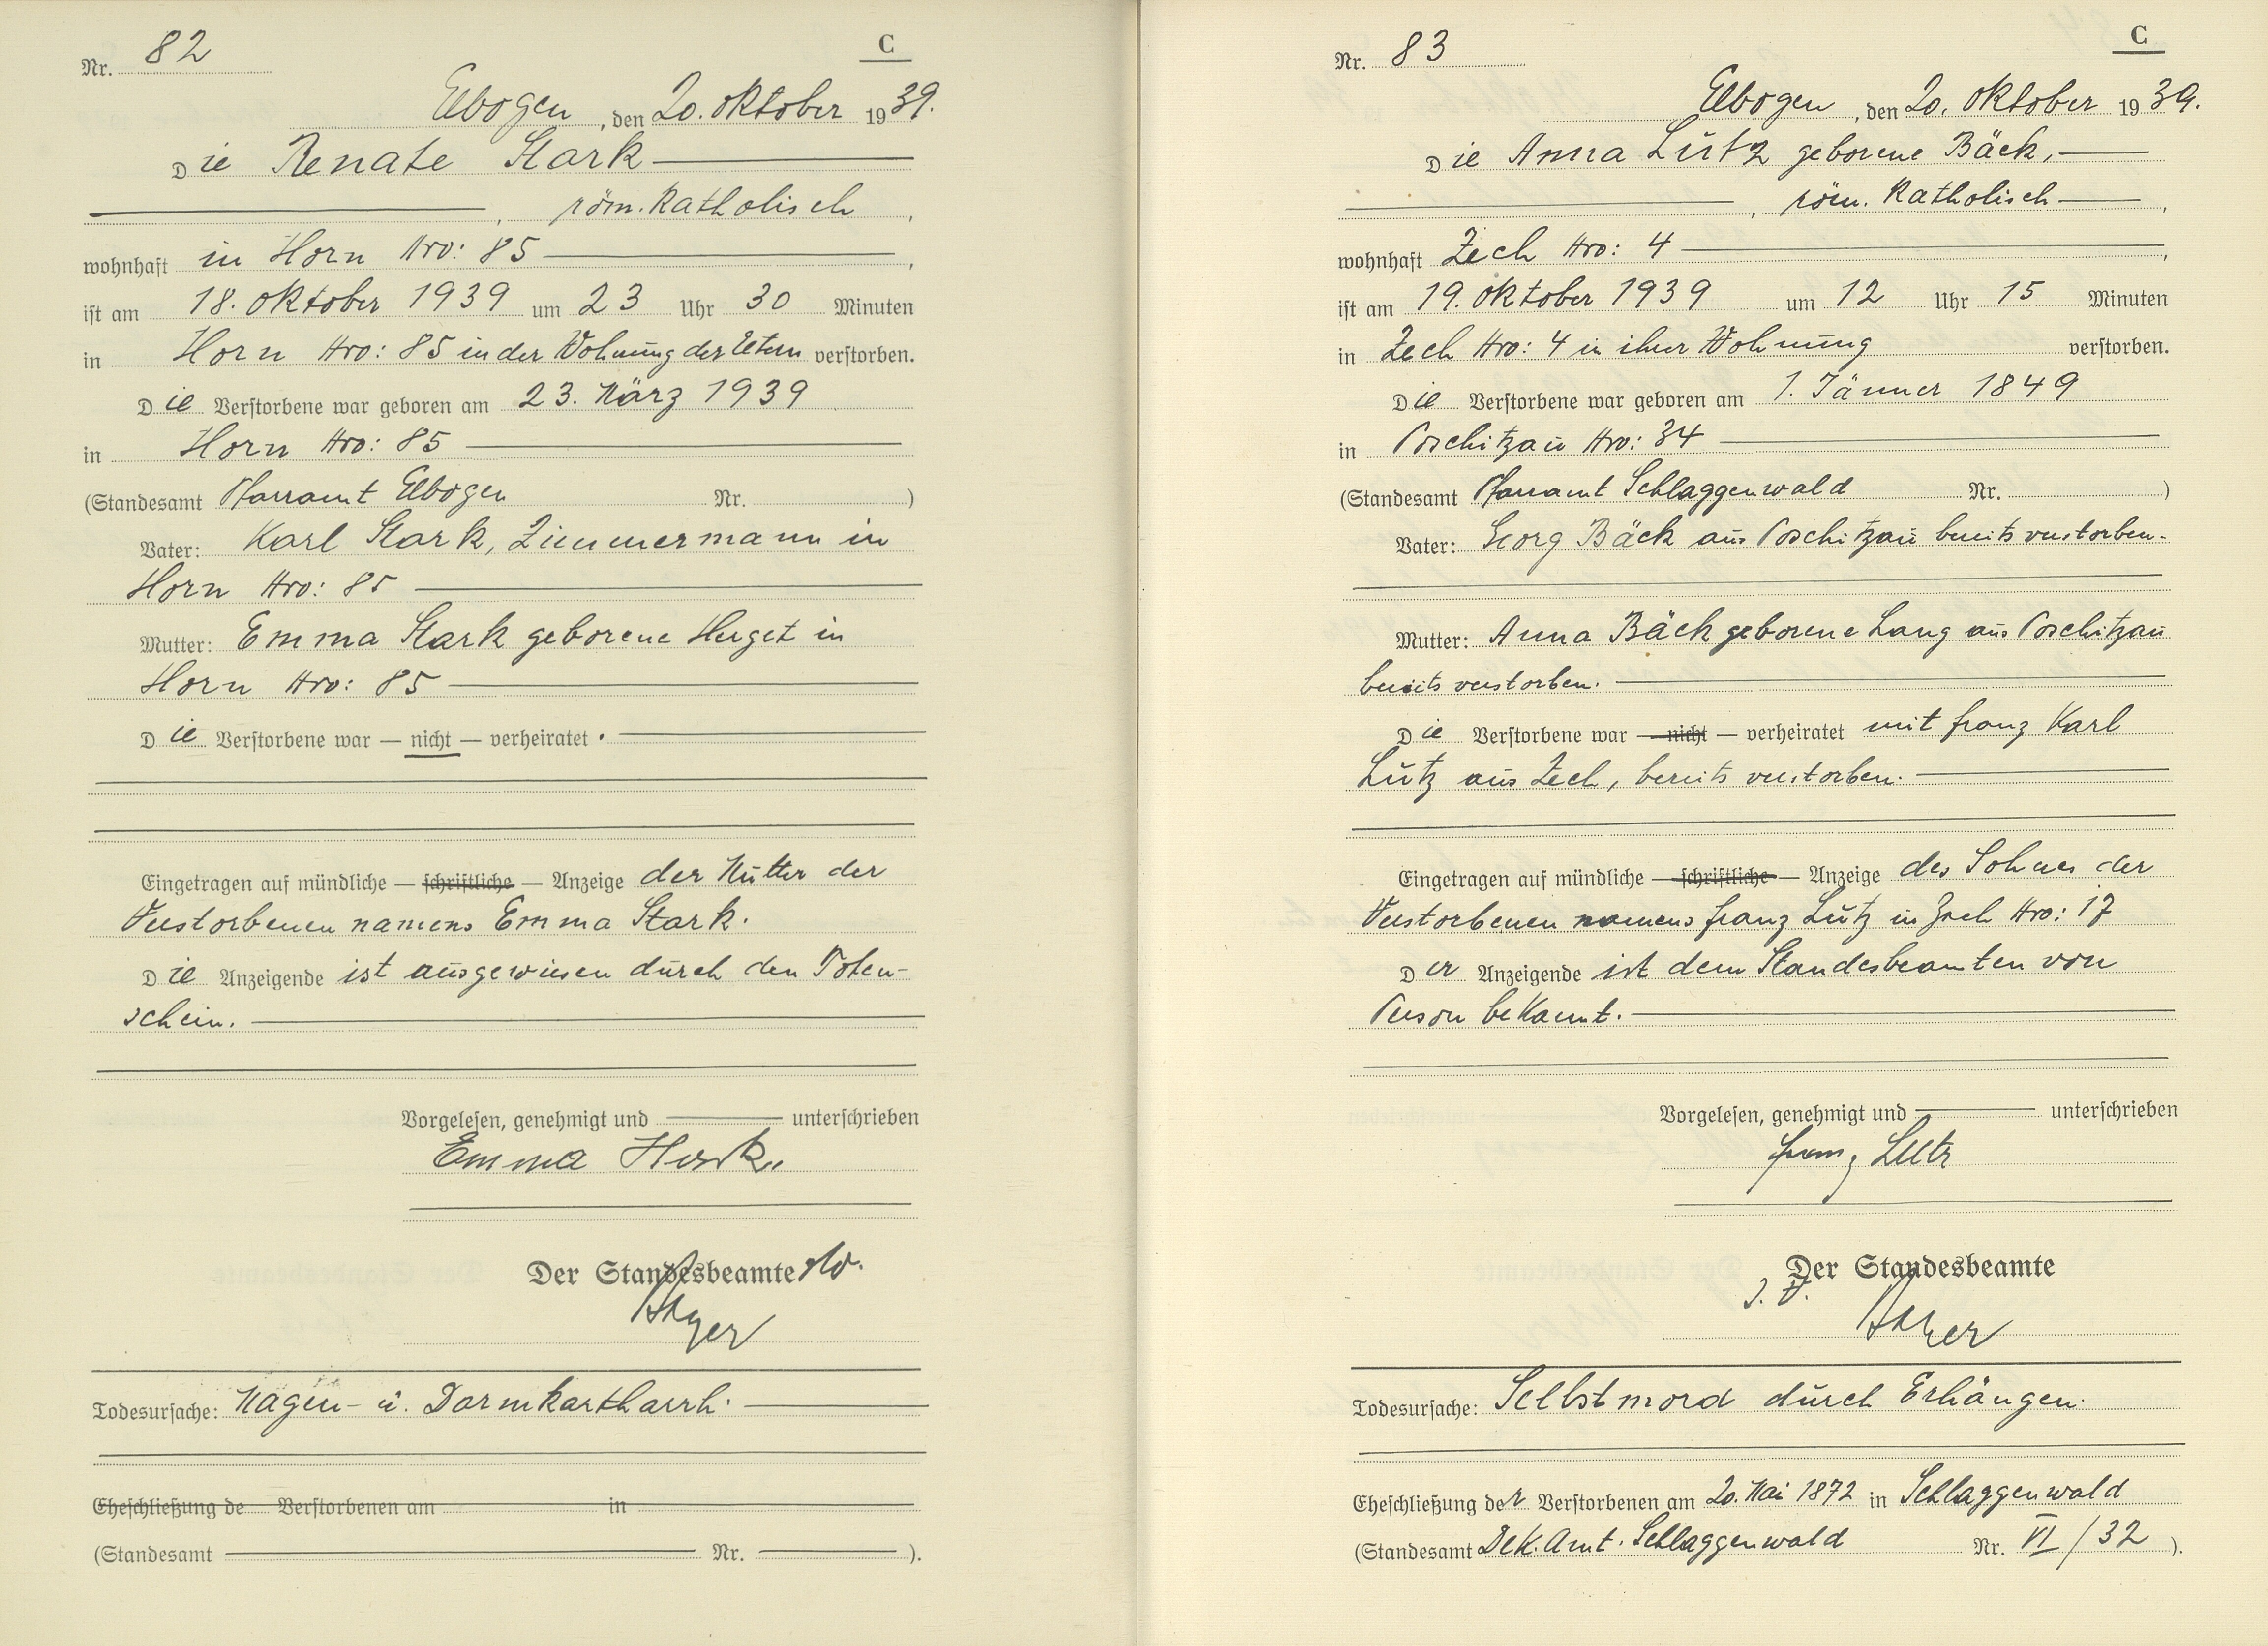 Nr. 82
C
Elbogen, den 20. Oktober 1939.
Die Renate Stark
, röm. Katholisch,
wohnhaft in Horn Nro: 85,
ist am 18. Oktober 1939 um 23 Uhr 30 Minuten
in Horn Nro: 85 in der Wohnung der Eltern verstorben.
Die Verstorbene war geboren am 23. März 1939
in Horn Nro: 85
(Standesamt Pfarramt Elbogen Nr. )
Vater: Karl Stark, Zimmermann in
Horn Nro: 85
Mutter: Emma Stark geborene Herget in
Horn Nro: 85
Die Verstorbene war — nicht — verheiratet.
Eingetragen auf mündliche — schriftliche — Anzeige der Mutter der
Verstorbenen namens Emma Stark.
Die Anzeigende ist ausgewiesen durch den Toten-
schein.
Vorgelesen, genehmigt und unterschrieben
Emma
Der Standesbeamte
Todesursache: Magen- u. Darmkartharrh.
Eheschließung de Verstorbenen am in
(Standesamt Nr. ).
Nr. 83
C
Elbogen, den 20. Oktober 1939.
Die Anna Lutz geborene Bäck,
, röm. Katholisch,
wohnhaft Zech Nro: 4,
ist am 19. Oktober 1939 um 12 Uhr 15 Minuten
in Zech Nro: 4 in ihrer Wohnung verstorben.
Die Verstorbene war geboren am 1. Jänner 1849
in Poschitzau Nro: 34
(Standesamt Pfarramt Schlaggenwald Nr. )
Vater: Georg Bäck aus Poschitzau bereits verstorben.
Mutter: Anna Bäck geborene Lang aus Poschitzau
bereits verstorben.
Die Verstorbene war — nicht — verheiratet mit Franz Karl
Lutz aus Zech, bereits verstorben.
Eingetragen auf mündliche — schriftliche — Anzeige des Sohnes der
Verstorbenen namens Franz Lutz in Zech Nro: 17
Der Anzeigende ist dem Standesbeamten von
Person bekannt.
Vorgelesen, genehmigt und unterschrieben
Franz Lutz
Der Standesbeamte
J. V.
Todesursache: Selbstmord durch Erhängen.
Eheschließung der Verstorbenen am 20. Mai 1872 in Schlaggenwald
(Standesamt Dek. Amt. Schlaggenwald Nr. VI/32 ).